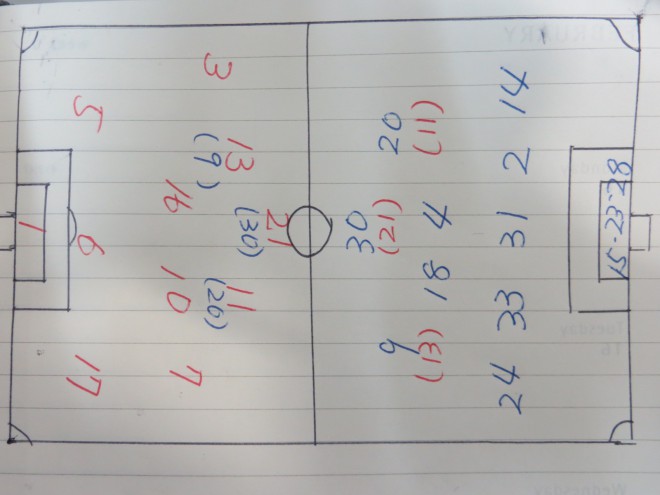 1
17 6 5
7 10 16 3
(20) (9)
11 13
(30)
21
30
9 20
(21)
(13) (11)
18 4
24 33 31 2 14
15-23-28